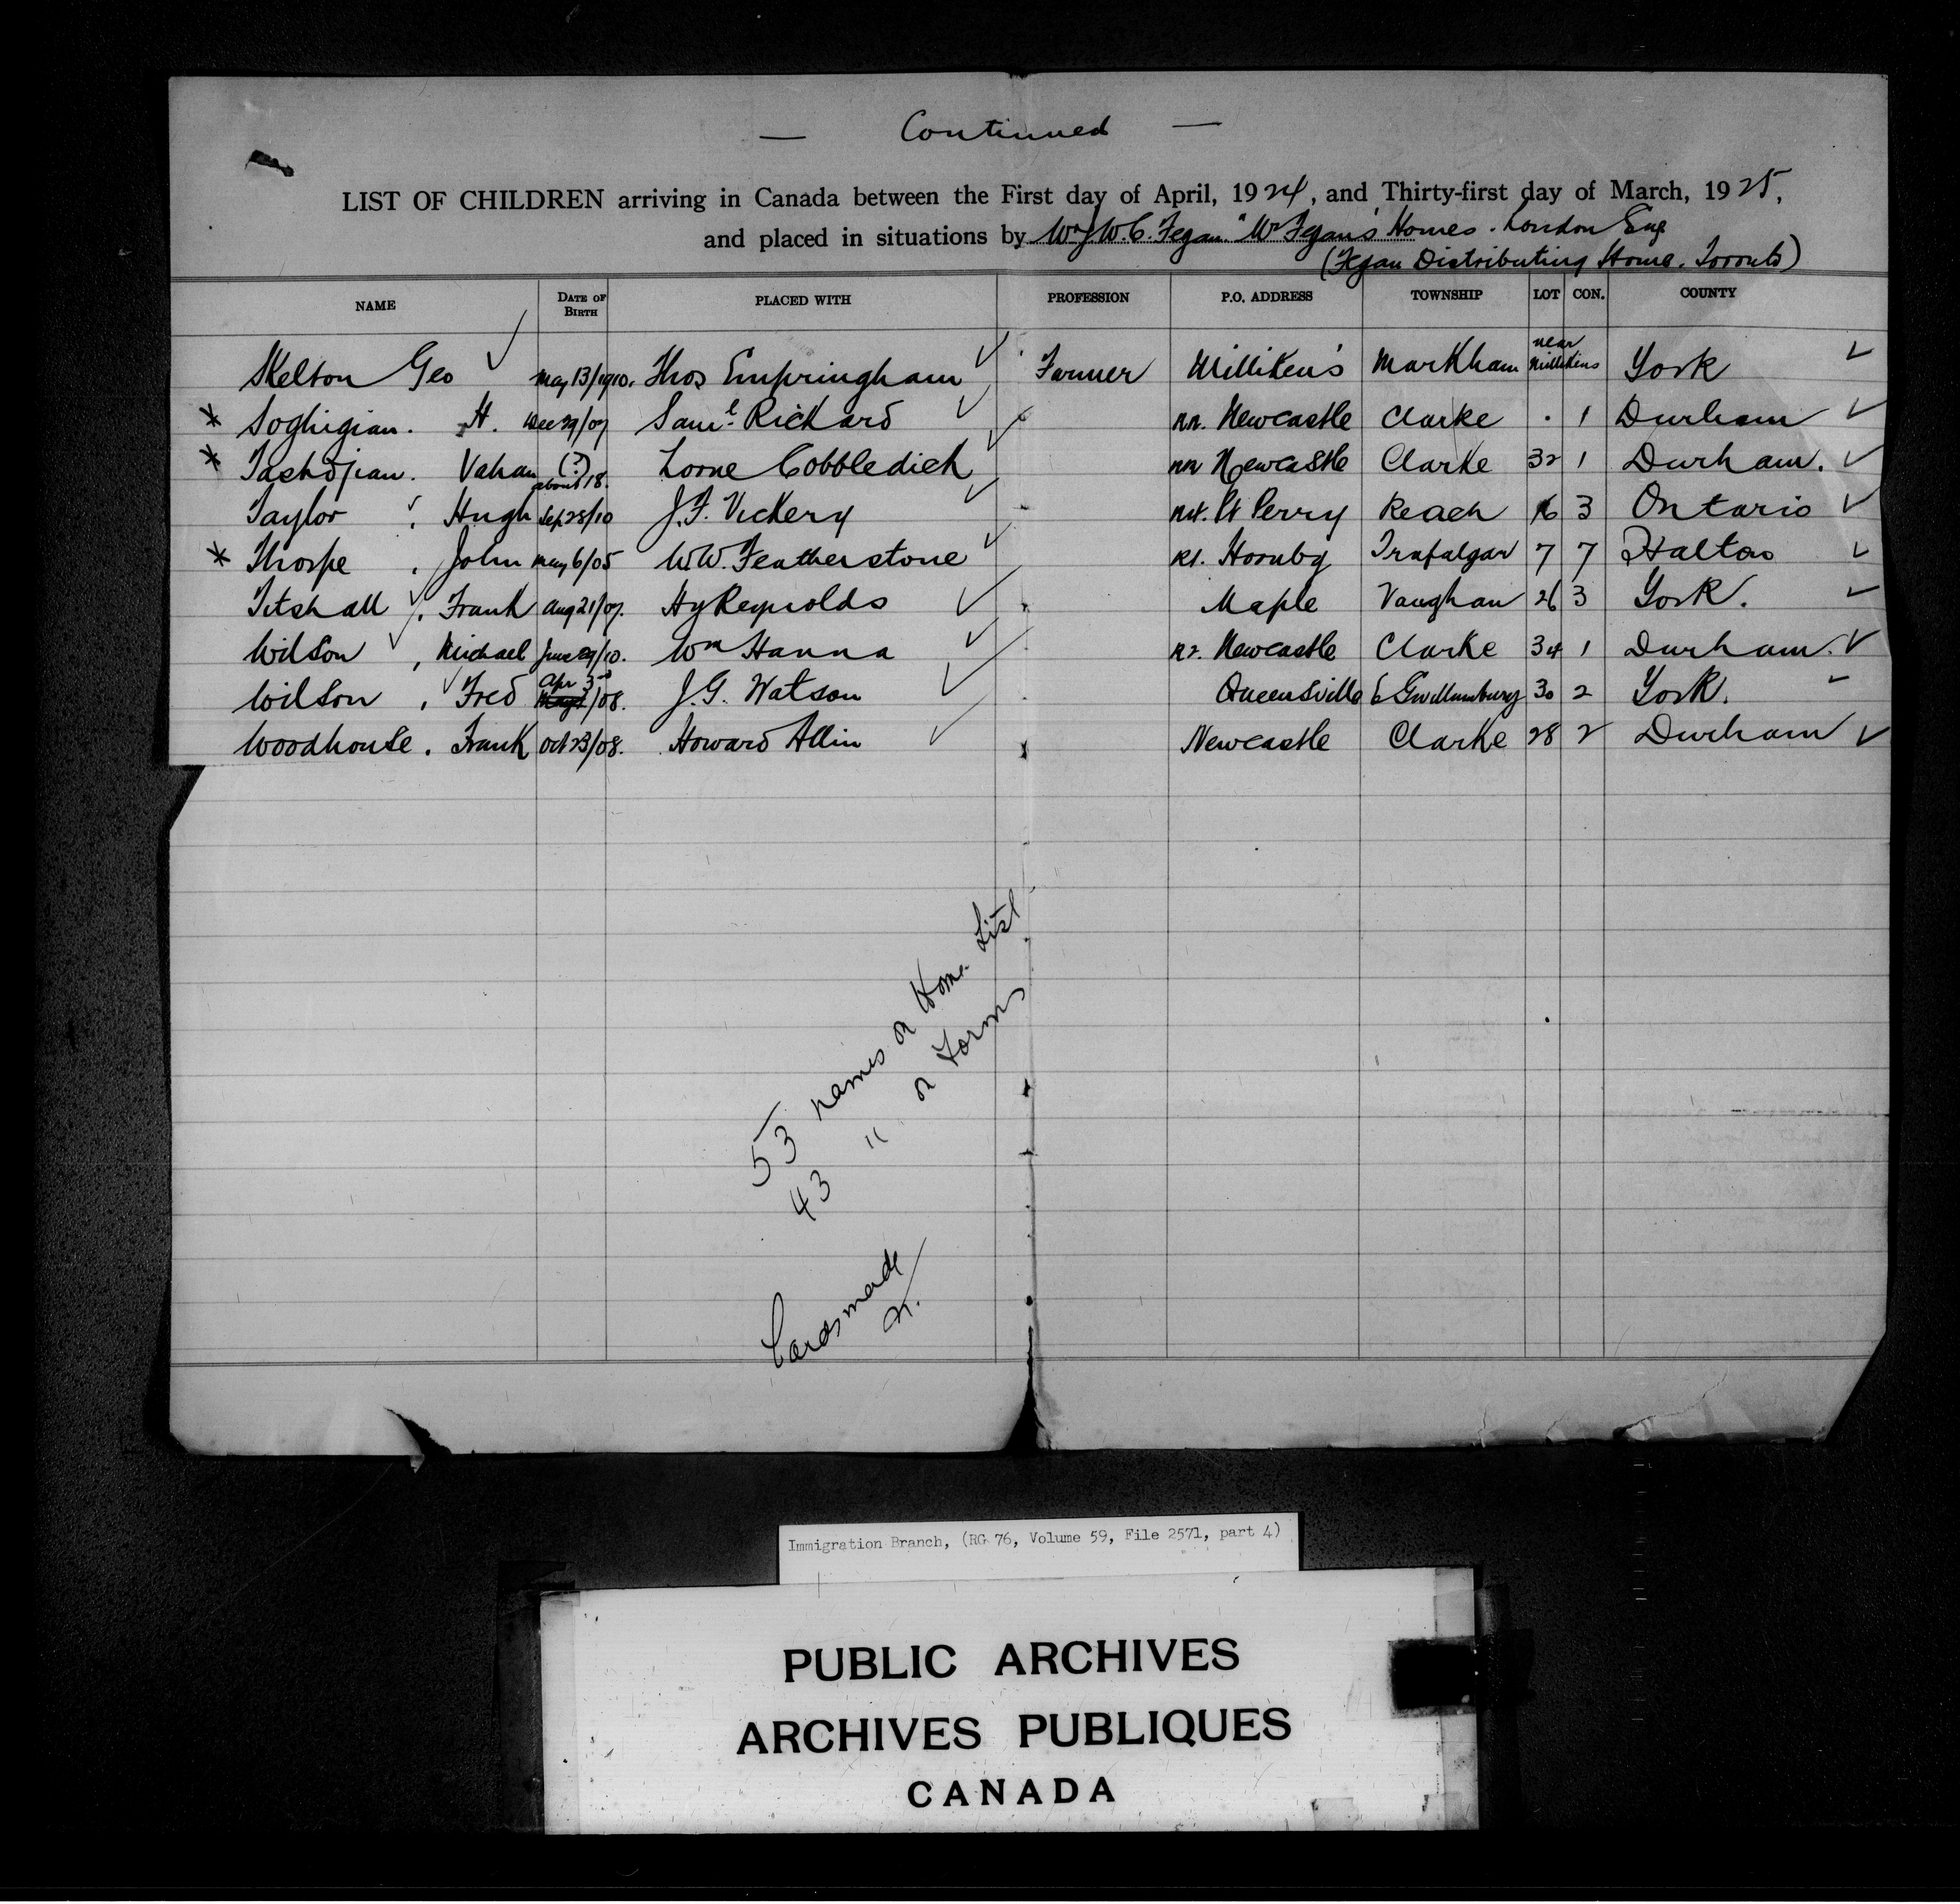 — Continued —
LIST OF CHILDREN arriving in Canada between the First day of April, 1924, and Thirty-first day of March, 1925,
and placed in situations by Mr J.W.C. Fegan. "Mr Fegan's Homes. London Eng
(Fegan Distributing Home. Toronto)
NAME DATE OF BIRTH PLACED WITH PROFESSION P.O. ADDRESS TOWNSHIP LOT CON. COUNTY
Skelton Geo May 13/1910. Thos Empringham Farmer Milliken's Markham near Millikens York
* Soghigian. H. Dec 29/07 Saml Rickard nr. Newcastle Clarke . 1 Durham
* Tashdjian. Vahan (?) about 18. Lorne Cobbledick nr Newcastle Clarke 32 1 Durham.
Taylor , Hugh Sep 28/10 J.F. Vickery Pt Perry Reach 16 3 Ontario
* Thorpe , John May 6/05 W.W. Featherstone R1. Hornby Trafalgar 7 7 Halton
Titshall , Frank Aug 21/07. Hy Reynolds Maple Vaughan 26 3 York.
Wilson , Michael June 29/10. Wm Hanna Newcastle Clarke 34 1 Durham.
Wilson , Fred Apr 3rd/08. J.G. Watson Queensville E Gwillumbury 30 2 York.
Woodhouse . Frank Oct 23/08. Howard Allin Newcastle Clarke 28 2 Durham
53 names on Home List
43 " on Forms
Cards made
Immigration Branch, (RG 76, Volume 59, File 2571, part 4)
PUBLIC ARCHIVES
ARCHIVES PUBLIQUES
CANADA